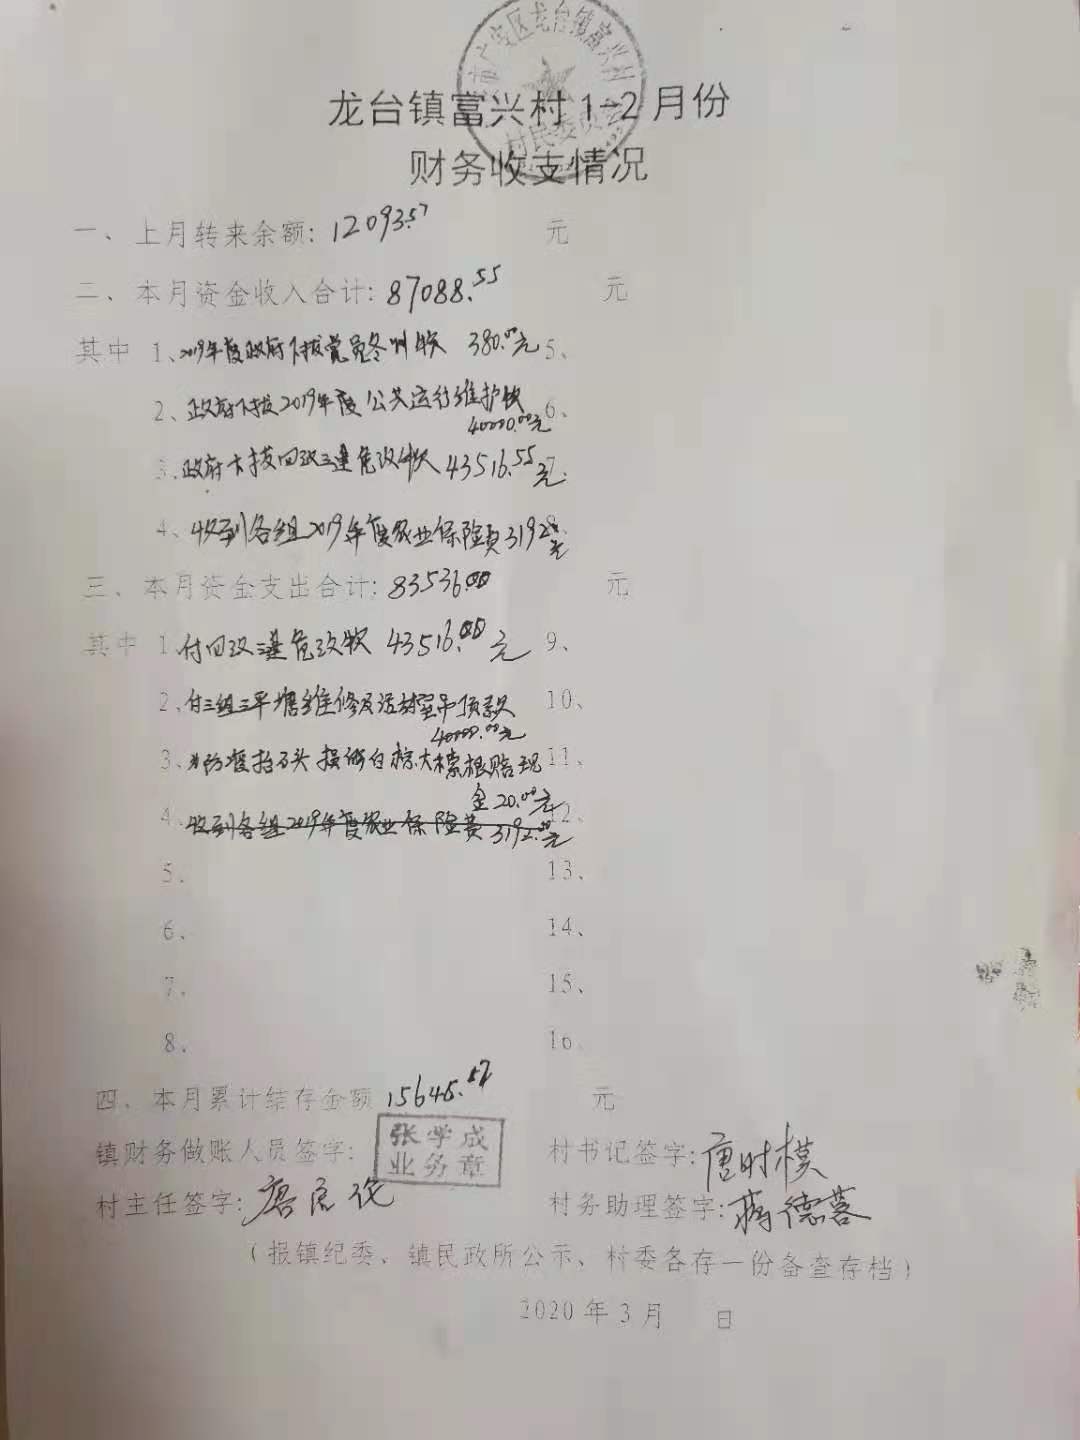 广安区龙台镇富兴村
村民委员会
龙台镇富兴村1-2月份
财务收支情况
一、上月转来余额:12093.57 元
二、本月资金收入合计:87088.55 元
其中 1、2019年度政府下拨党员冬训款 380.00元 5、
2、政府下拨2019年度公共运行维护款 6、
40000.00元
3、政府下拨四改三建危改款 43516.55元 7、
4、收到各组2019年度农业保险费3192.00元 8、
三、本月资金支出合计:83536.00 元
其中 1、付四改三建危改款 43516.00元 9、
2、付三组三平塘维修及活动室吊顶款 10、
40000.00元
3、抬石头损伤白 大 根赔现 11、
金20.00元
4、收到各组2019年度农业保险费3192.00元 12、
5、 13、
6、 14、
7、 15、
8、 16、
四、本月累计结存金额 15645.57 元
镇财务做账人员签字: 张学成 业务章 村书记签字:唐时模
村主任签字:唐 村务助理签字:蒋德蓉
(报镇纪委、镇民政所公示、村委各存一份备查存档)
2020年3月 日